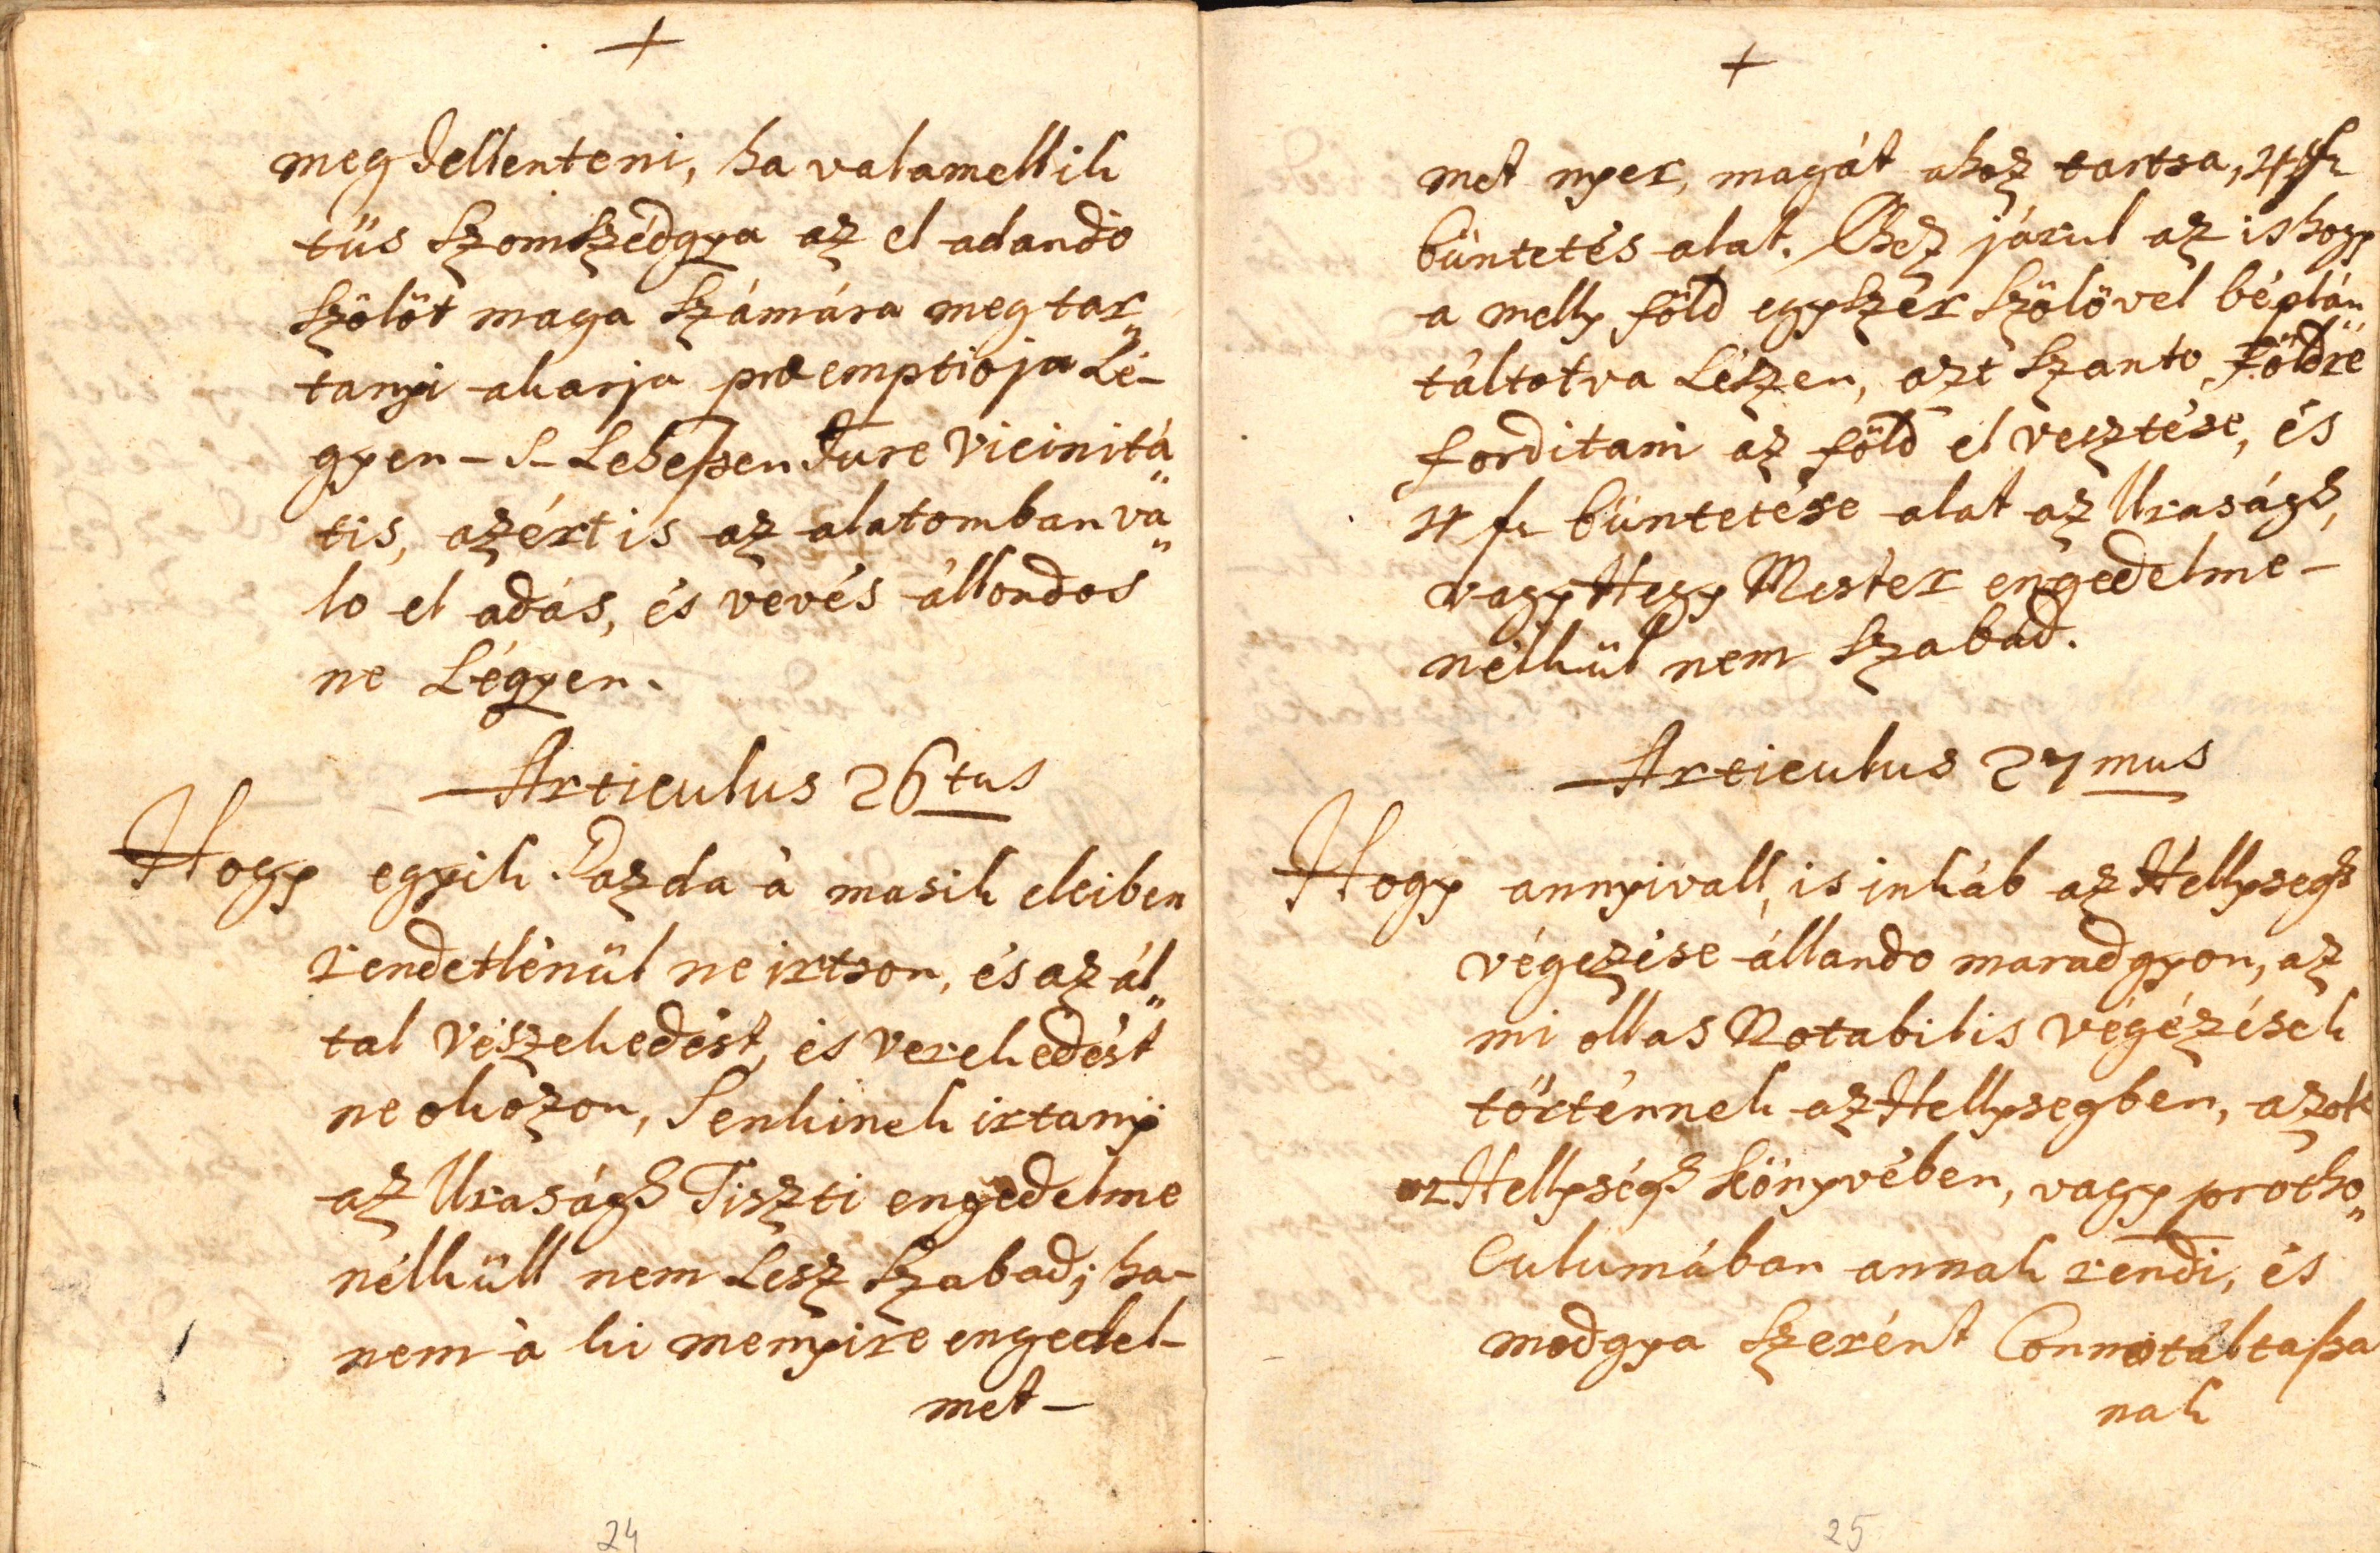 +
meg Jellenteni, ha valamellik
tüs Szomszédgya az el adando
Szölöt maga Számára meg tar„
tanyi akarja præemptioja Lé-
gyen – S – Lehessen Jure Vicinitá„
tis, azért is az alatomban va„
lo el adás, és vevés állondos
ne Légyen.
Articulus 26tus
Hogy egyik Gazda à masik eleiben
rendetlenül ne irtson, és az ál„
tal veszekedést, és verekedést
ne okozon, Senkinek irtanyi
az Uraságh Tiszti engedelme
nélküll nem Lesz Szabad; ha-
nem à ki menyire engedel-
met –
24
+
met nyer, magát ahoz tartsa, 4 fr
büntetés alat. Ehez járul az is hogy
a melly föld egyszer Szölövel béplán„
táltotva Lészen, azt Szanto Földre
forditani az föld el vesztése, és
4 fr büntetése alat az Uraságh,
vagy Hegy Mester engedelme –
nélkül nem Szabad.
Articulus 27mus
Hogy annyivall is inkáb az Hellysegh
végezése állando maradgyon, az
mi ollas Notabilis végézések
történnek az Hellysegben, azok
az Hellységh Könyvében, vagy protho„
Culumában annak rendi, és
modgya Szerént Connotáltassa
nak
25